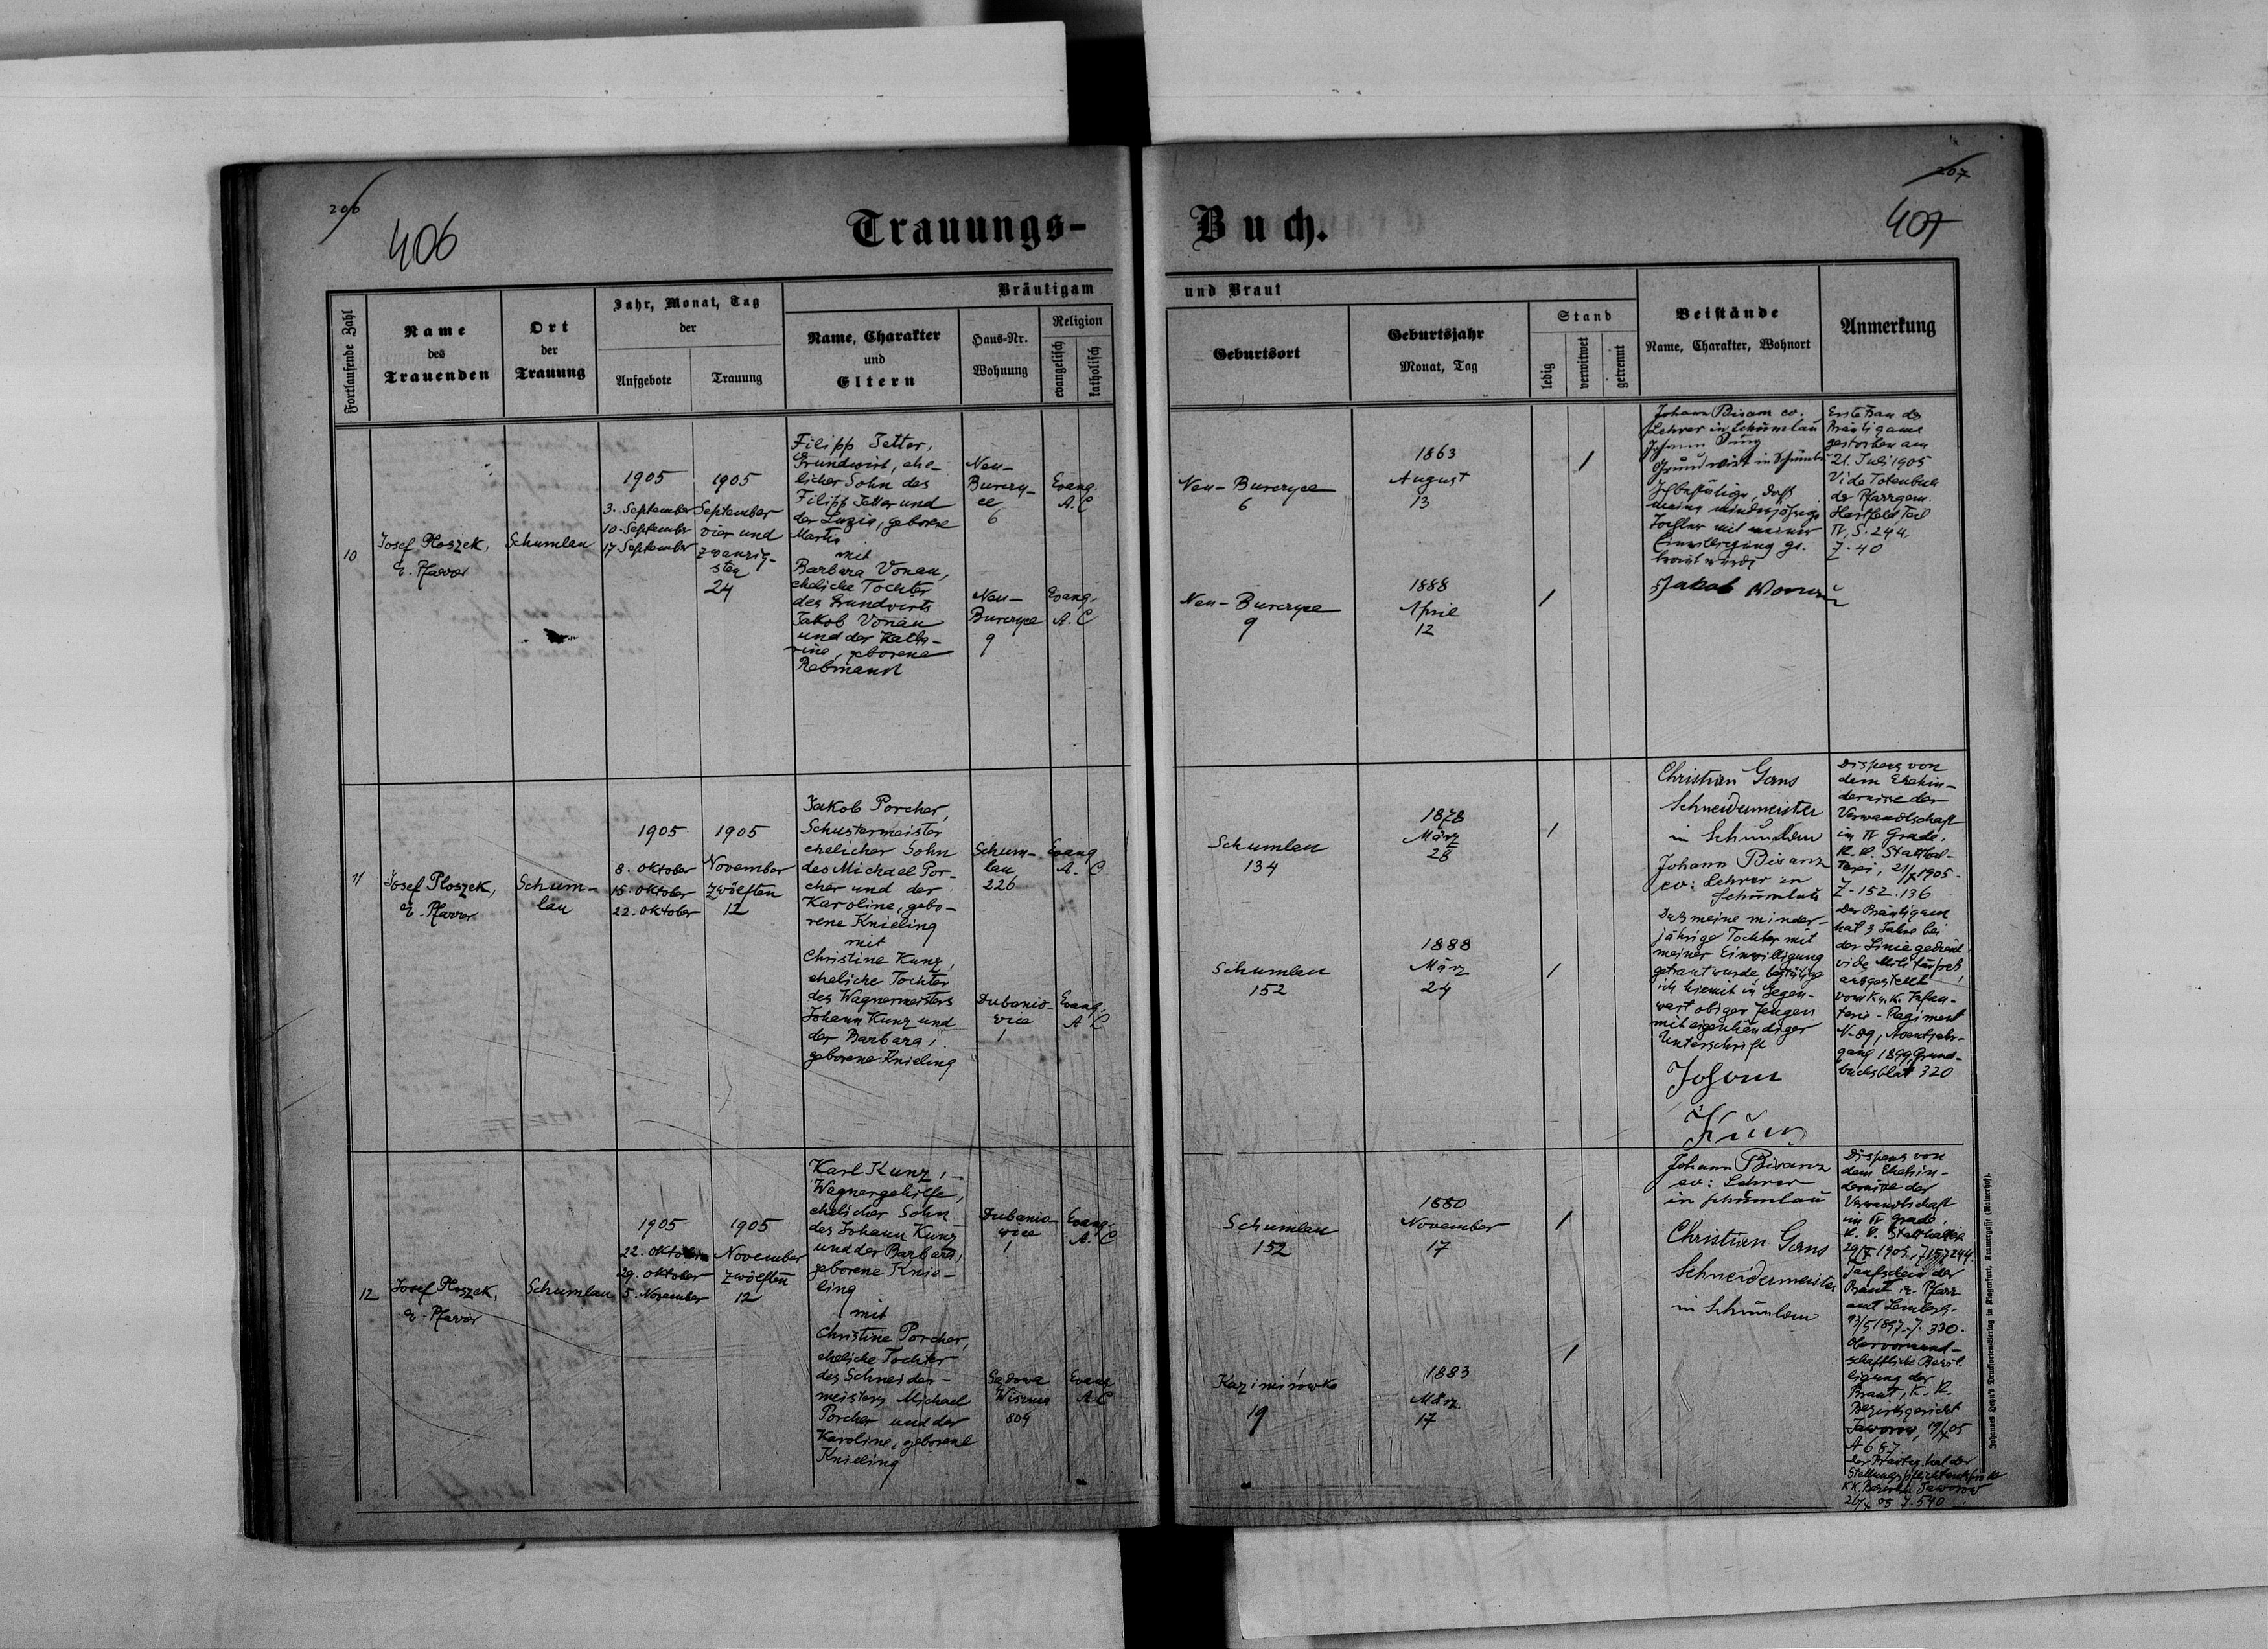 206
406
Trauungs-
Buch.
207
407
Fortlaufende Zahl
Name
des
Trauenden
Ort
der
Trauung
Jahr, Monat, Tag
der
Aufgebote
Trauung
Bräutigam
und Braut
Name, Charakter
und
Eltern
Haus-Nr.
Wohnung
Religion
evangelisch
katholisch
Geburtsort
Geburtsjahr
Monat, Tag
Stand
ledig
verwitwet
getrennt
Beistände
Name, Charakter, Wohnort
Anmerkung
10
Josef Ploszek,
e. Pfarrer
Schumlau
1905
3. September
10. September
17. September
1905
September
vier und
zwanzig-
sten
24
Filipp Jetter,
Grundwirt, ehe-
licher Sohn des
Filipp Jetter und
der Luzia, geborene
Martin
mit
Barbara Vonau,
eheliche Tochter
des Grundwirts
Jakob Vonau
und der Katha-
rine, geborene
Rebmann
Neu-
Burczy-
ce
6
Evang.
A. C
Neu-
Burczyce
9
Evang.
A. C
Neu-Burczyce
6
1863
August
13
/
Neu-Burczyce
9
1888
April
12
/
Johann Bisanz ev.
Lehrer in Schumlau
Johann
Grundwirt in Schumlau
Ich bestätige, daß
meine minderjährige
Tochter mit meiner
Einwilligung ge-
traut wurde
Jakob Vonau
Erste Frau des
Bräutigams
gestorben am
21. Juli 1905
Vide Totenbuch
der Pfarrgem.
Hartfeld Teil
IV, S. 244,
Z. 40
11
Josef Ploszek,
e. Pfarrer
Schum-
lau
1905
8. Oktober
15. Oktober
22. Oktober
1905
November
zwölften
12
Jakob Porcher,
Schustermeister
ehelicher Sohn
des Michael Por-
cher und der
Karoline, gebo-
rene Knieling
mit
Christine Kunz,
eheliche Tochter
des Wagnermeisters
Johann Kunz und
der Barbara,
geborene Knieling
Schum-
lau
226
Evang
A. C
Dubanio-
wice
1
Evang.
A C
Schumlau
134
1878
März
28
/
Schumlau
152
1888
März
24
/
Christian Gans
Schneidermeister
in Schumlau
Johann Bisanz
ev: Lehrer in
Schumlau
Daß meine minder-
jährige Tochter mit
meiner Einwilligung
getraut wurde bestätige
ich hiemit in Gegen-
wart obiger Zeugen
mit eigenhändiger
Unterschrift
Johann
Kunz
Dispens von
dem Ehehin-
dernisse der
Verwandtschaft
im IV Grade.
K. K. Statthal-
terei, 21/X 1905.
Z. 152.136
Der Bräutigam
hat 3 Jahre bei
der Linie gedient
vide Militärpaß
ausgestellt
vom K. u. K. Infan-
terie-Regiment
N. 89, Assentjahr-
gang 1899, Grund-
buchsblatt 320
12
Josef Ploszek,
e. Pfarrer
Schumlau
1905
22. Oktober
29. Oktober
5. November
1905
November
zwölften
12
Karl Kunz,
Wagnergehilfe,
ehelicher Sohn
des Johann Kunz
und der Barbara,
geborene Knie-
ling
mit
Christine Porcher,
eheliche Tochter
des Schneider-
meisters Michael
Porcher und der
Karoline, geborene
Knieling
Dubanio-
wice
1
Evang.
A. C
Sądowa
Wisznia
809
Evang
A. C
Schumlau
152
1880
November
17
/
Kazimirówka
19
1883
März
17
/
Johann Bisanz
ev: Lehrer
in Schumlau
Christian Gans
Schneidermeister
in Schumlau
Dispens von
dem Ehehin-
dernisse der
Verwandtschaft
im IV Grade,
K. K. Statthalterei
29/X 1905, Z 157244.
Taufschein der
Braut e. Pfarr
amt Lemberg.
13/5 1897. Z. 330.
Obervormund-
schaftliche Bewil-
ligung der
Braut, K. K.
Bezirksgericht
Jaworow, 19/X 05
A 687
Der Bräutig. hat der
Stellungspflicht entsprochen
KK. Bezirksh. Jaworow
26/X 05 Z. 540
Johannes Heyn's Drucksorten-Verlag in Klagenfurt, Kramergasse (Rainerhof).